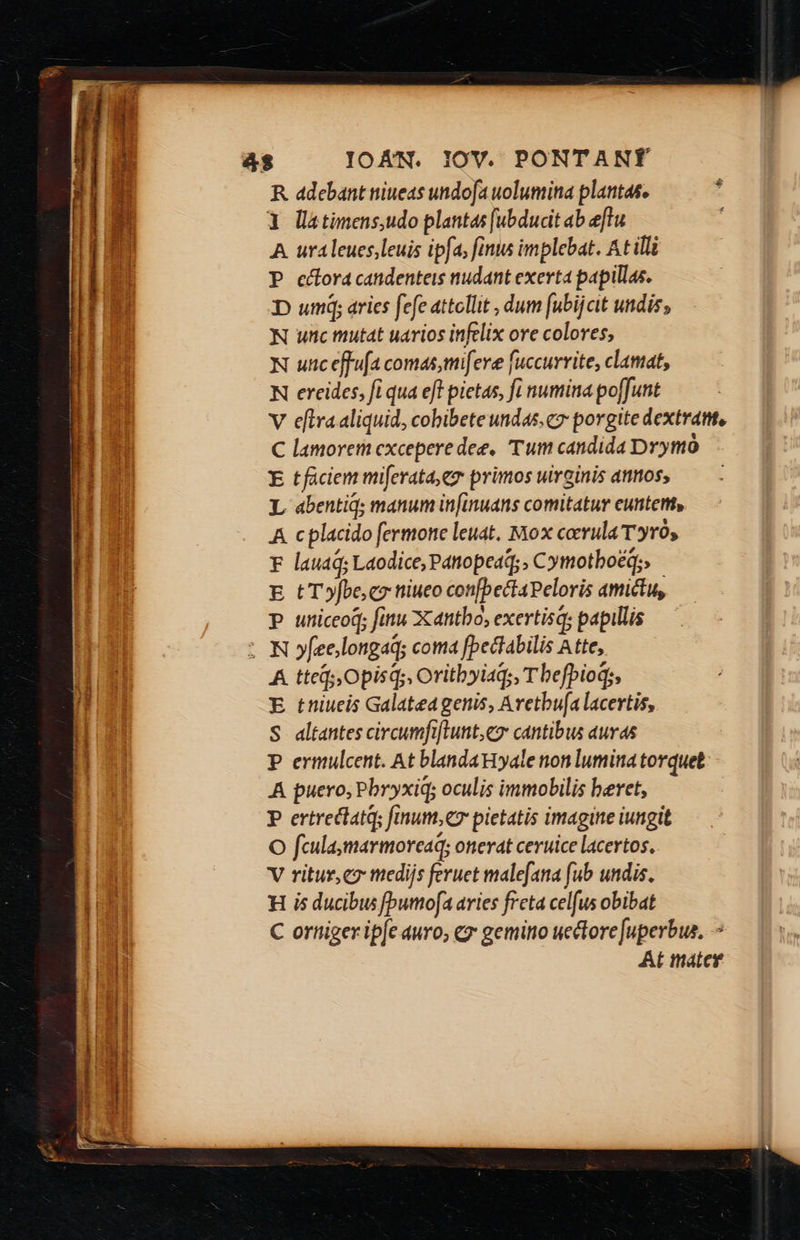 48 IOAN. IOV. PONTANI
R adebant niueas undoſa uolumina plantas.
I lla timens, udo plantas ſubducit ab æſtu
A ura leues, leuis ipſa, ſinus implebat. At illi
P ectora candenteis nudant exerta papillas.
D umq; aries ſeſe attollit, dum ſubijcit undis,
N unc mutat uarios infelix ore colores,
N unc effuſa comas, miſeræ ſuccurrite, clamat,
N ereides, ſi qua eſt pietas, ſi numina poſſunt
V eſtra aliquid, cohibete undas, & porgite dextram.
C lamorem excepere deæ. Tum candida Drymò
E t faciem miſerata, & primos uirginis annos,
L abentiq; manum inſinuans comitatur euntem,
A c placido ſermone leuat. Mox cœrula Tyrò,
F lauaq; Laodice, Panopeaq;, Cymothoëq;,
E t Tyſbe, & niueo conſpecta Peloris amictu,
P uniceoq; ſinu Xantho, exertisq; papillis
N yſee, longaq; coma ſpectabilis Atte,
A tteq;, Opisq;, Orithyiaq;, Theſpioq;,
E t niueis Galatea genis, Arethuſa lacertis,
S altantes circumſiſtunt, & cantibus auras
P ermulcent. At blanda Hyale non lumina torquet
A puero, Phryxiq; oculis immobilis hæret,
P ertrectatq; ſinum, & pietatis imagine iungit
O ſcula, marmoreaq; onerat ceruice lacertos.
V ritur, & medijs feruet maleſana ſub undis.
H is ducibus ſpumoſa aries freta celſus obibat
C orniger ipſe auro, & gemino uectore ſuperbus.
At mater